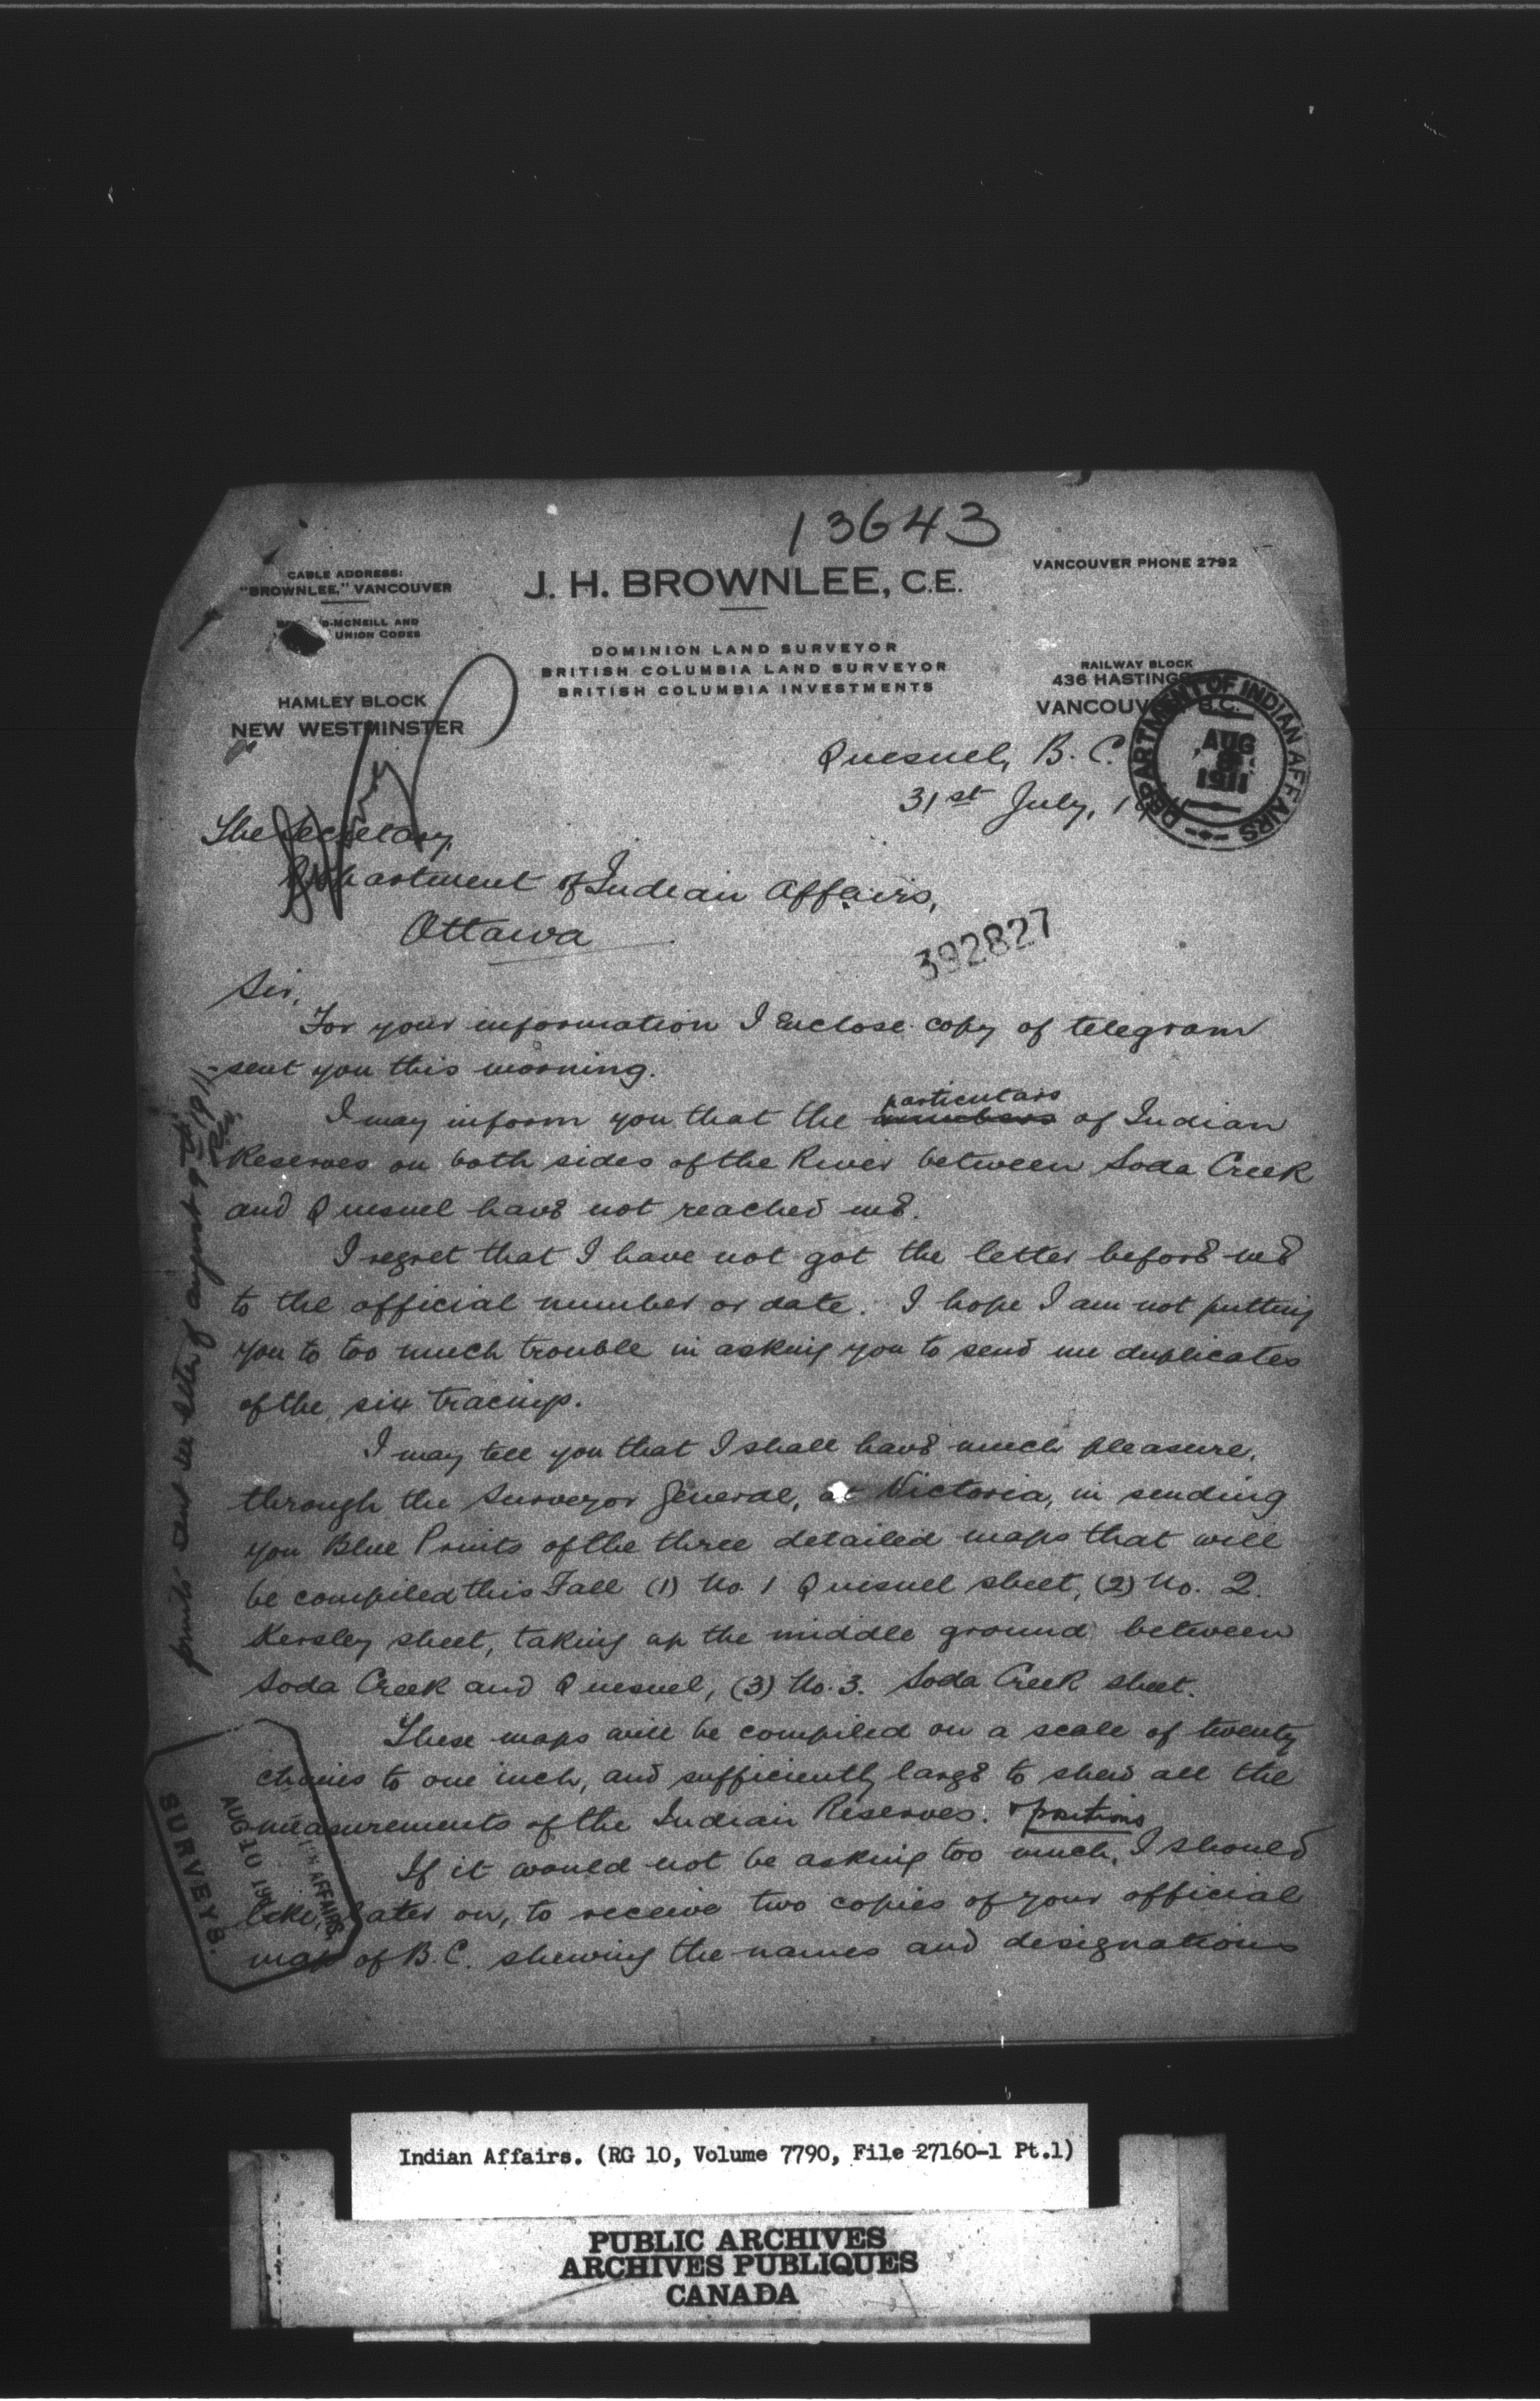 13643
CABLE ADDRESS:
"BROWNLEE," VANCOUVER
-MCNEILL AND
UNION CODES
J. H. BROWNLEE, C.E.
VANCOUVER PHONE 2792
DOMINION LAND SURVEYOR
BRITISH COLUMBIA LAND SURVEYOR
BRITISH COLUMBIA INVESTMENTS
HAMLEY BLOCK
NEW WESTMINSTER
RAILWAY BLOCK
436 HASTINGS
VANCOUVER B.C.
DEPARTMENT OF INDIAN AFFAIRS
AUG
8
1911
Quesnel, B. C.
31st July, 1911
The Secretary,
Department of Indian Affairs,
Ottawa
392827
Sir,
For your information I Enclose copy of telegram
sent you this morning.
I may inform you that the particulars of Indian
Reserves on both sides of the River between Soda Creek
and Quesnel have not reached me.
I regret that I have not got the letter before me
to the official number or date. I hope I am not putting
you to too much trouble in asking you to send me duplicates
of the six tracings.
I may tell you that I shall have much pleasure,
through the Surveyor General, at Victoria, in sending
you Blue Prints of the three detailed maps that will
be compiled this Fall (1) No. 1 Quesnel sheet, (2) No. 2.
Kersley sheet, taking up the middle ground between
Soda Creek and Quesnel, (3) No. 3. Soda Creek sheet.
These maps will be compiled on a scale of twenty
chains to one inch, and sufficiently large to shew all the
measurements of the Indian Reserves. & positions
If it would not be asking too much, I should
like, later on, to receive two copies of your official
map of B.C. shewing the names and designations
prints sent see letter of august 9th 1911
SURVEYS.
AUG 10 1911
AFFAIRS
Indian Affairs. (RG 10, Volume 7790, File 27160-1 Pt.1)
PUBLIC ARCHIVES
ARCHIVES PUBLIQUES
CANADA